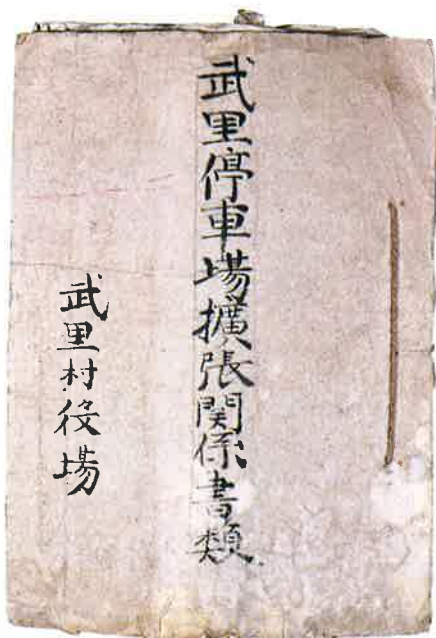 武里停車場擴張関係書類
武里村役場